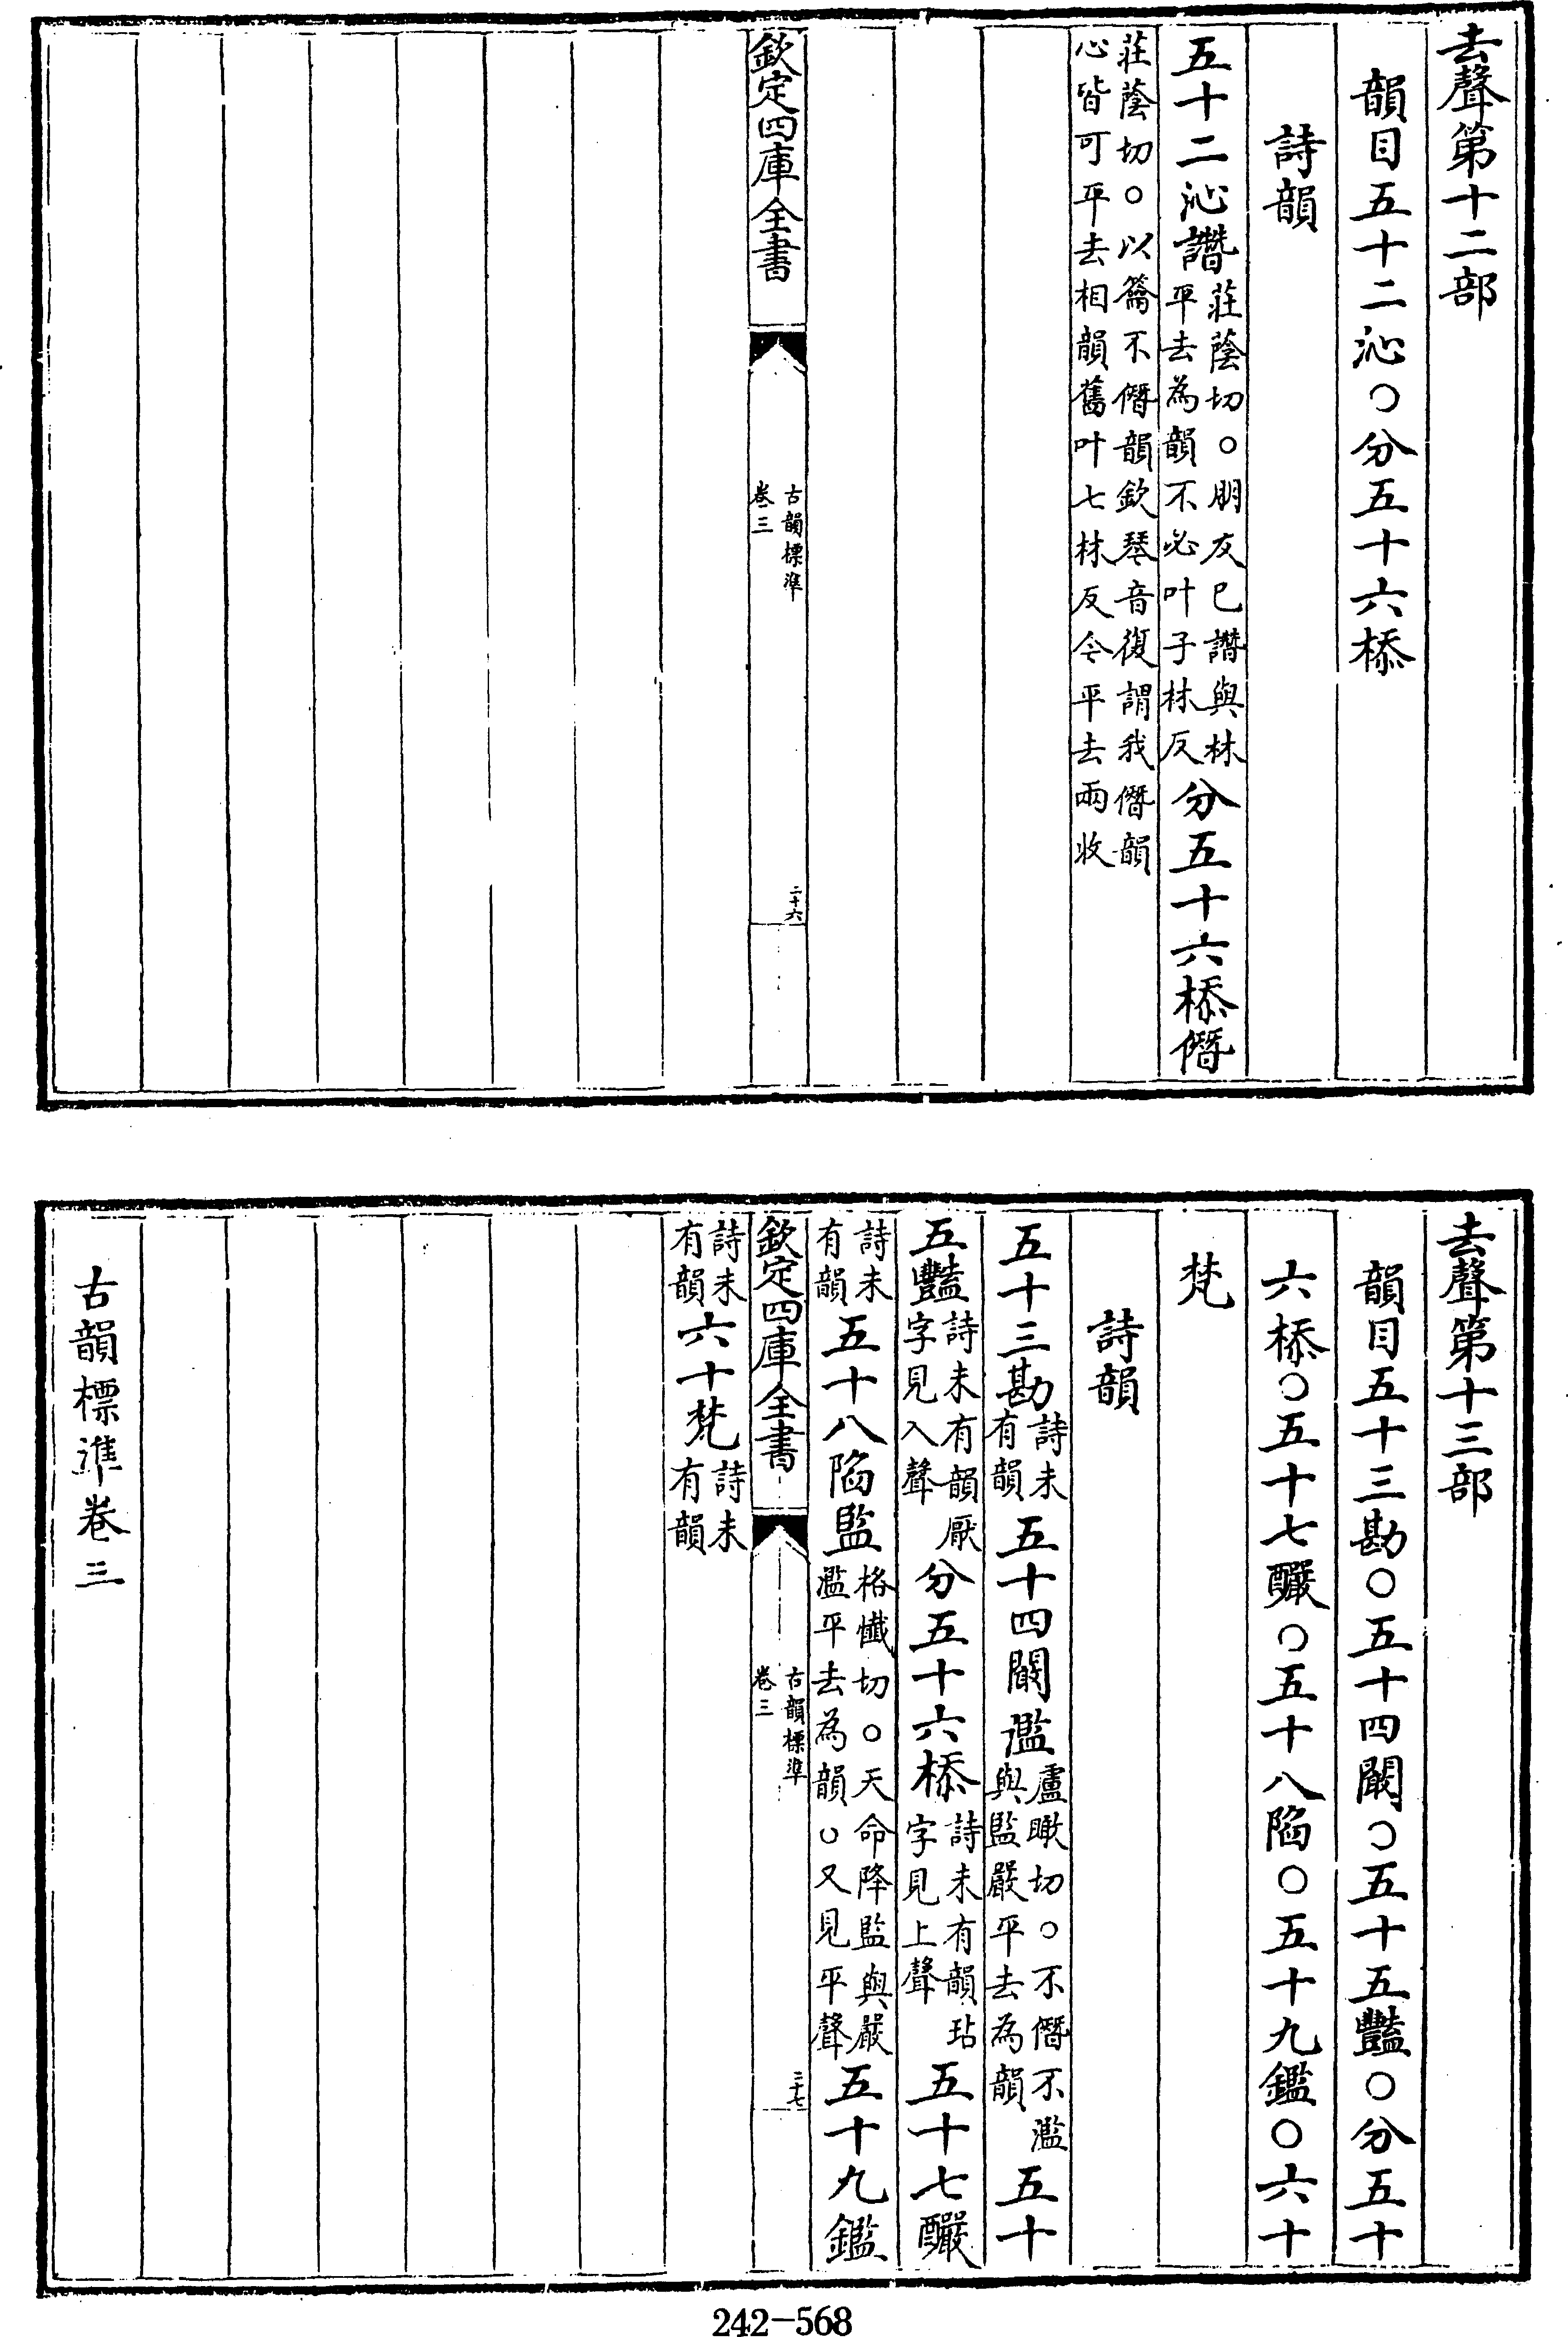 去聲第十二部
韻目五十二沁○分五十六㮇
詩韻
五十二沁譖莊蔭切○朋友已譖與林
平去為韻不必叶子林反分五十六㮇僭
莊蔭切○以籥不僭韻欽琴音復謂我僭韻
心皆可平去相韻舊叶七林反今平去兩收
欽定四庫全書
古韻標準
卷三
二十六
去聲第十三部
韻目五十三勘○五十四闞○五十五豔○分五十
六㮇○五十七釅○五十八陷○五十九鑑○六十
梵
詩韻
五十三勘詩未
有韻五十四闞濫盧瞰切○不僭不濫
與監嚴平去為韻五十
五豔詩未有韻厭
字見入聲分五十六㮇詩未有韻玷
字見上聲五十七釅
詩未
有韻五十八陷監格懺切○天命降監與嚴
濫平去為韻○又見平聲五十九鑑
欽定四庫全書
古韻標準
卷三
二十七
詩未
有韻六十梵詩未
有韻
古韻標準卷三
242-568